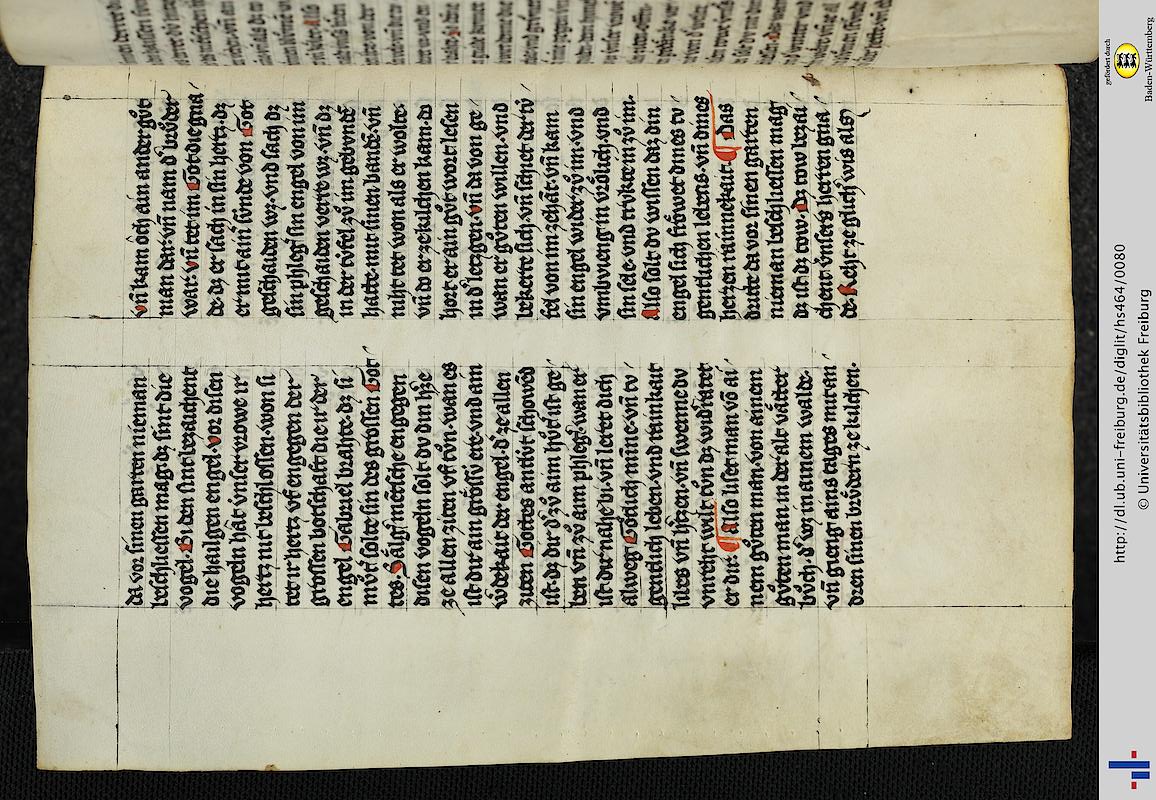 da vor sinen garten nieman
beschliessen mag. dz sint die
vogel. Bi den sint bezaichent
die hailgen engel. vor disen
vogeln hat vnser vrowe ir
hertz nit beschlossen. won si
tet ir hertz vf engegen der
grossen botschaft die ir der
engel Gabriel brahte. dz si
můt solte sin des grossen Got
tes. Sälig mēsche engegen
disen vogeln solt dv din hˢze
ze allen ziten vf tůn. wan es
ist dir ain grossv ere. vnd am
wdekait der engel. dˢ ze allen
ziten Gottes antlvt schowēd
ist. dz dir dˢ zů aim hůt ist ge
ben vn̄ zů aim phleg. wan er
ist dir nahe bi. vn̄ leret dich
alweg Götlich minne. vn̄ tv
gentlich leben. vnd rainkait
libes vn̄ hˢzen. vn̄ swenne dv
vnreht wilt tůn dz widˢratet
er dir. ¶ Also liset man vō ai
nem gůten man. von ainem
gůten man. in der alt vätter
bůch. dˢ wz in ainem walde.
vn̄ gieng ains tages mit an
dren sinen brůdern ze kilchen.
vn̄ kam och ain ander gůt
man dar. vn̄ nam dˢ brůder
war. vn̄ tet im Got die gna
de. dz er sach in sin hertz. dz
er mit aīr sv̄nde von Got
geschaiden wz. vnd sach dz
sin phleg sin engel von im
geschaiden verre wz. vn̄ dz
in der tvfel zů im gebvndē
hatte. mit sinen bande. vn̄
niht tet won als er wolte.
vn̄ do er ze kilchen kam. do
hort er ain gůt wort lesen
in dˢ letzgen. vn̄ da von ge
wan er gůten willen. vnd
bekerte sich. vn̄ schiet der tv
fel von im zehāt. vn̄ kam
sin engel wider zů im. vnd
vmbvieng in vrölich. vnd
sin sele. vnd trvkte in zů im.
Also solt dv wissen daz din
engel sich fröwet dines tv
gentlichen lebens. vn̄ dines
hertzen rainnekait. ¶ Das
duite da vor sinen garten
nieman beschliessen mag
dz ist dz tow. Dz tow bezai
chent vnsers herren gna
de. Reht ze glich wis als
gefördert durch
Baden-Württemberg
http://dl.ub.uni-freiburg.de/diglit/hs464/0080
© Universitätsbibliothek Freiburg